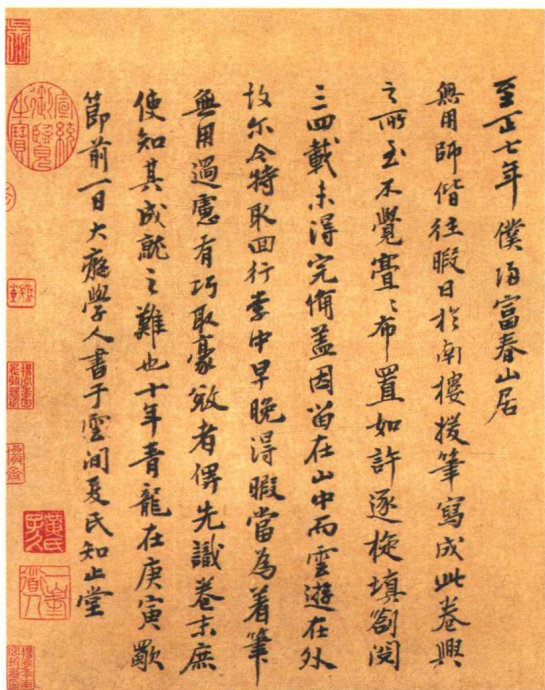 至正七年僕歸富春山居
無用師偕往暇日於南樓援筆寫成此卷興
之所至不覺亹〻布置如許逐旋填劄閱
三四載未得完備蓋因留在山中而雲遊在外
故尔今特取回行李中早晚得暇當為着筆
無用過慮有巧取豪敓者俾先識卷末庶
使知其成就之難也十年青龍在庚寅歜
節前一日大癡學人書于雲間夏氏知止堂
宣統御覽之寶
黃氏子久
一峯道人